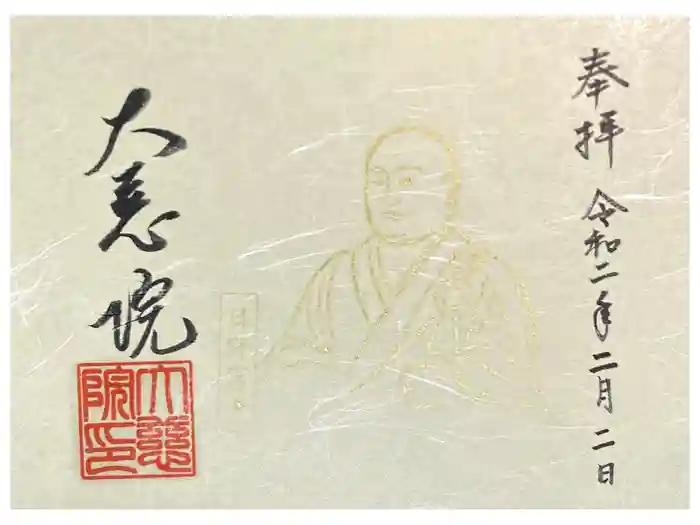 奉拝 令和二年二月二日
大慈院
大慈院印